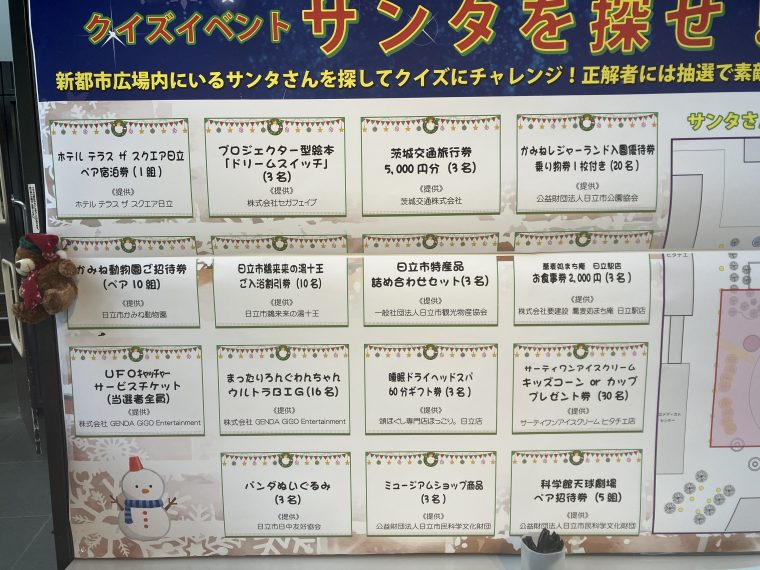 クイズイベント サンタを探せ!
新都市広場内にいるサンタさんを探してクイズにチャレンジ!正解者には抽選で素敵
サンタさん
ホテル テラス ザ スクエア日立
ペア宿泊券(1組)
《提供》
ホテル テラス ザ スクエア日立
プロジェクター型絵本
「ドリームスイッチ」
(3名)
《提供》
株式会社セガフェイブ
茨城交通旅行券
5,000円分 (3名)
《提供》
茨城交通株式会社
かみねレジャーランド入園優待券
乗り物券1枚付き(20名)
《提供》
公益財団法人日立市公園協会
かみね動物園ご招待券
(ペア10組)
《提供》
日立市かみね動物園
日立市鵜来来の湯十王
ご入浴割引券 (10名)
《提供》
日立市鵜来来の湯十王
日立市特産品
詰め合わせセット(3名)
《提供》
一般社団法人日立市観光物産協会
蕎麦処まち庵 日立駅店
お食事券2,000円(3名)
《提供》
株式会社要建設 蕎麦処まち庵 日立駅店
UFOキャッチャー
サービスチケット
(当選者全員)
《提供》
株式会社 GENDA GiGO Entertainment
まったりろんぐわんちゃん
ウルトラBIG(16名)
《提供》
株式会社 GENDA GiGO Entertainment
睡眠ドライヘッドスパ
60分ギフト券(3名)
《提供》
頭ほぐし専門店ほっこり。日立店
サーティワンアイスクリーム
キッズコーン or カップ
プレゼント券 (30名)
《提供》
サーティワンアイスクリーム ヒタチエ店
パンダぬいぐるみ
(3名)
《提供》
日立市日中友好協会
ミュージアムショップ商品
(3名)
《提供》
公益財団法人日立市民科学文化財団
科学館天球劇場
ペア招待券 (5組)
《提供》
公益財団法人日立市民科学文化財団